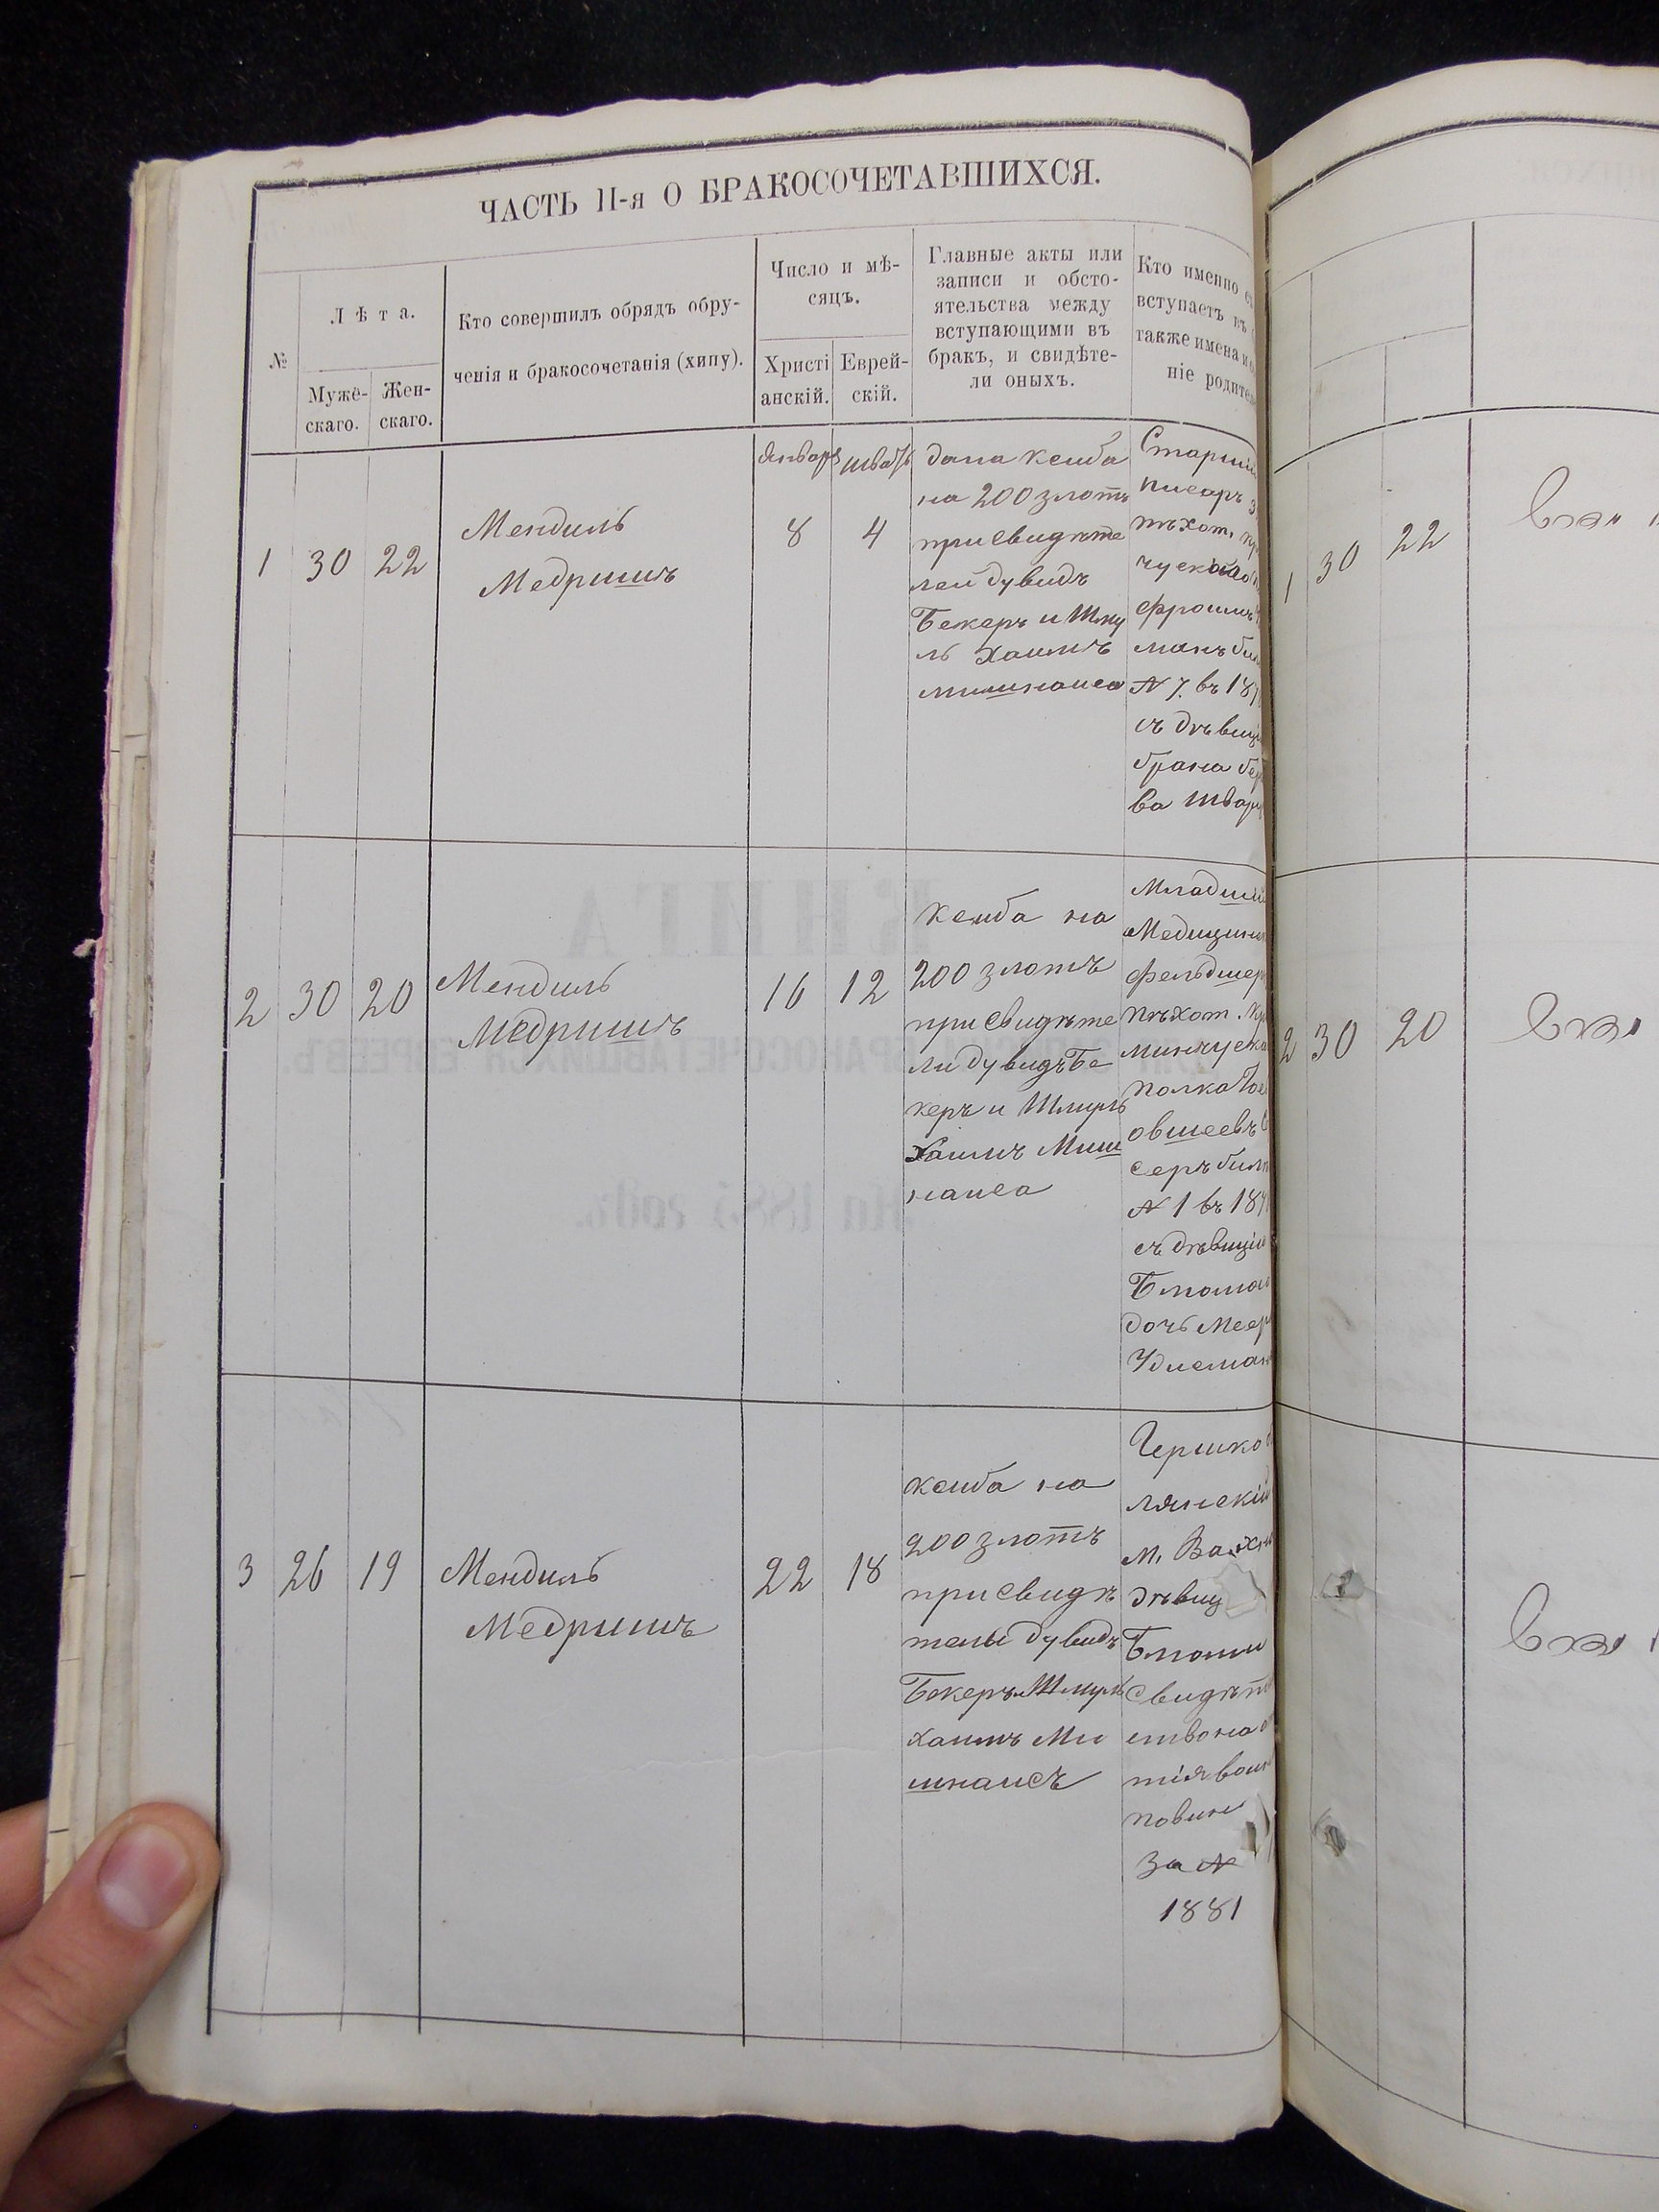 ЧАСТЬ II-я О БРАКОСОЧЕТАВШИХСЯ.
№
Лѣта.
Муже-
скаго.
Жен-
скаго.
Кто совершилъ обрядъ обру-
ченія и бракосочетанія (хипу).
Число и мѣ-
сяцъ.
Христі
анскій.
Еврей-
скій.
Главные акты или
записи и обсто-
ятельства между
вступающими въ
бракъ, и свидѣте-
ли оныхъ.
Кто именно
вступаетъ въ
также имена и
ніе родите
1
30
22
Мендиль
Медришъ
Январь
8
4
дана ксиба
на 200 злотъ
при свидѣте
лей дувидъ
Бекеръ и Шму
ль Хаимъ
Мишнаиса
Старшій
писаръ
пѣхот.
манъ
№ 7. въ 18
съ дѣвиц
брана
ва Швар
2
30
20
Мендиль
Медришъ
16
12
ксиба на
200 злотъ
при свидѣте
ли дувидъ Бе
керъ и Шмуль
Хаимъ Миш
наиса
Младшій
Медицин
фельдшер
пѣхот.
полка
овшеевъ
серъ
№ 1 въ 18
съ дѣвиці
дочь Меер
3
26
19
Мендиль
Медришъ
22
18
ксиба на
200 злотъ
при свидѣ
тели дувидъ
Бекеръ и Шмуль
Хаимъ Ми
шнаисъ
Гершко
лянскій
м.
дѣвиц
свидѣт
ство на
тія воин
повин
за №
1881
1
30
22
2
30
20
3